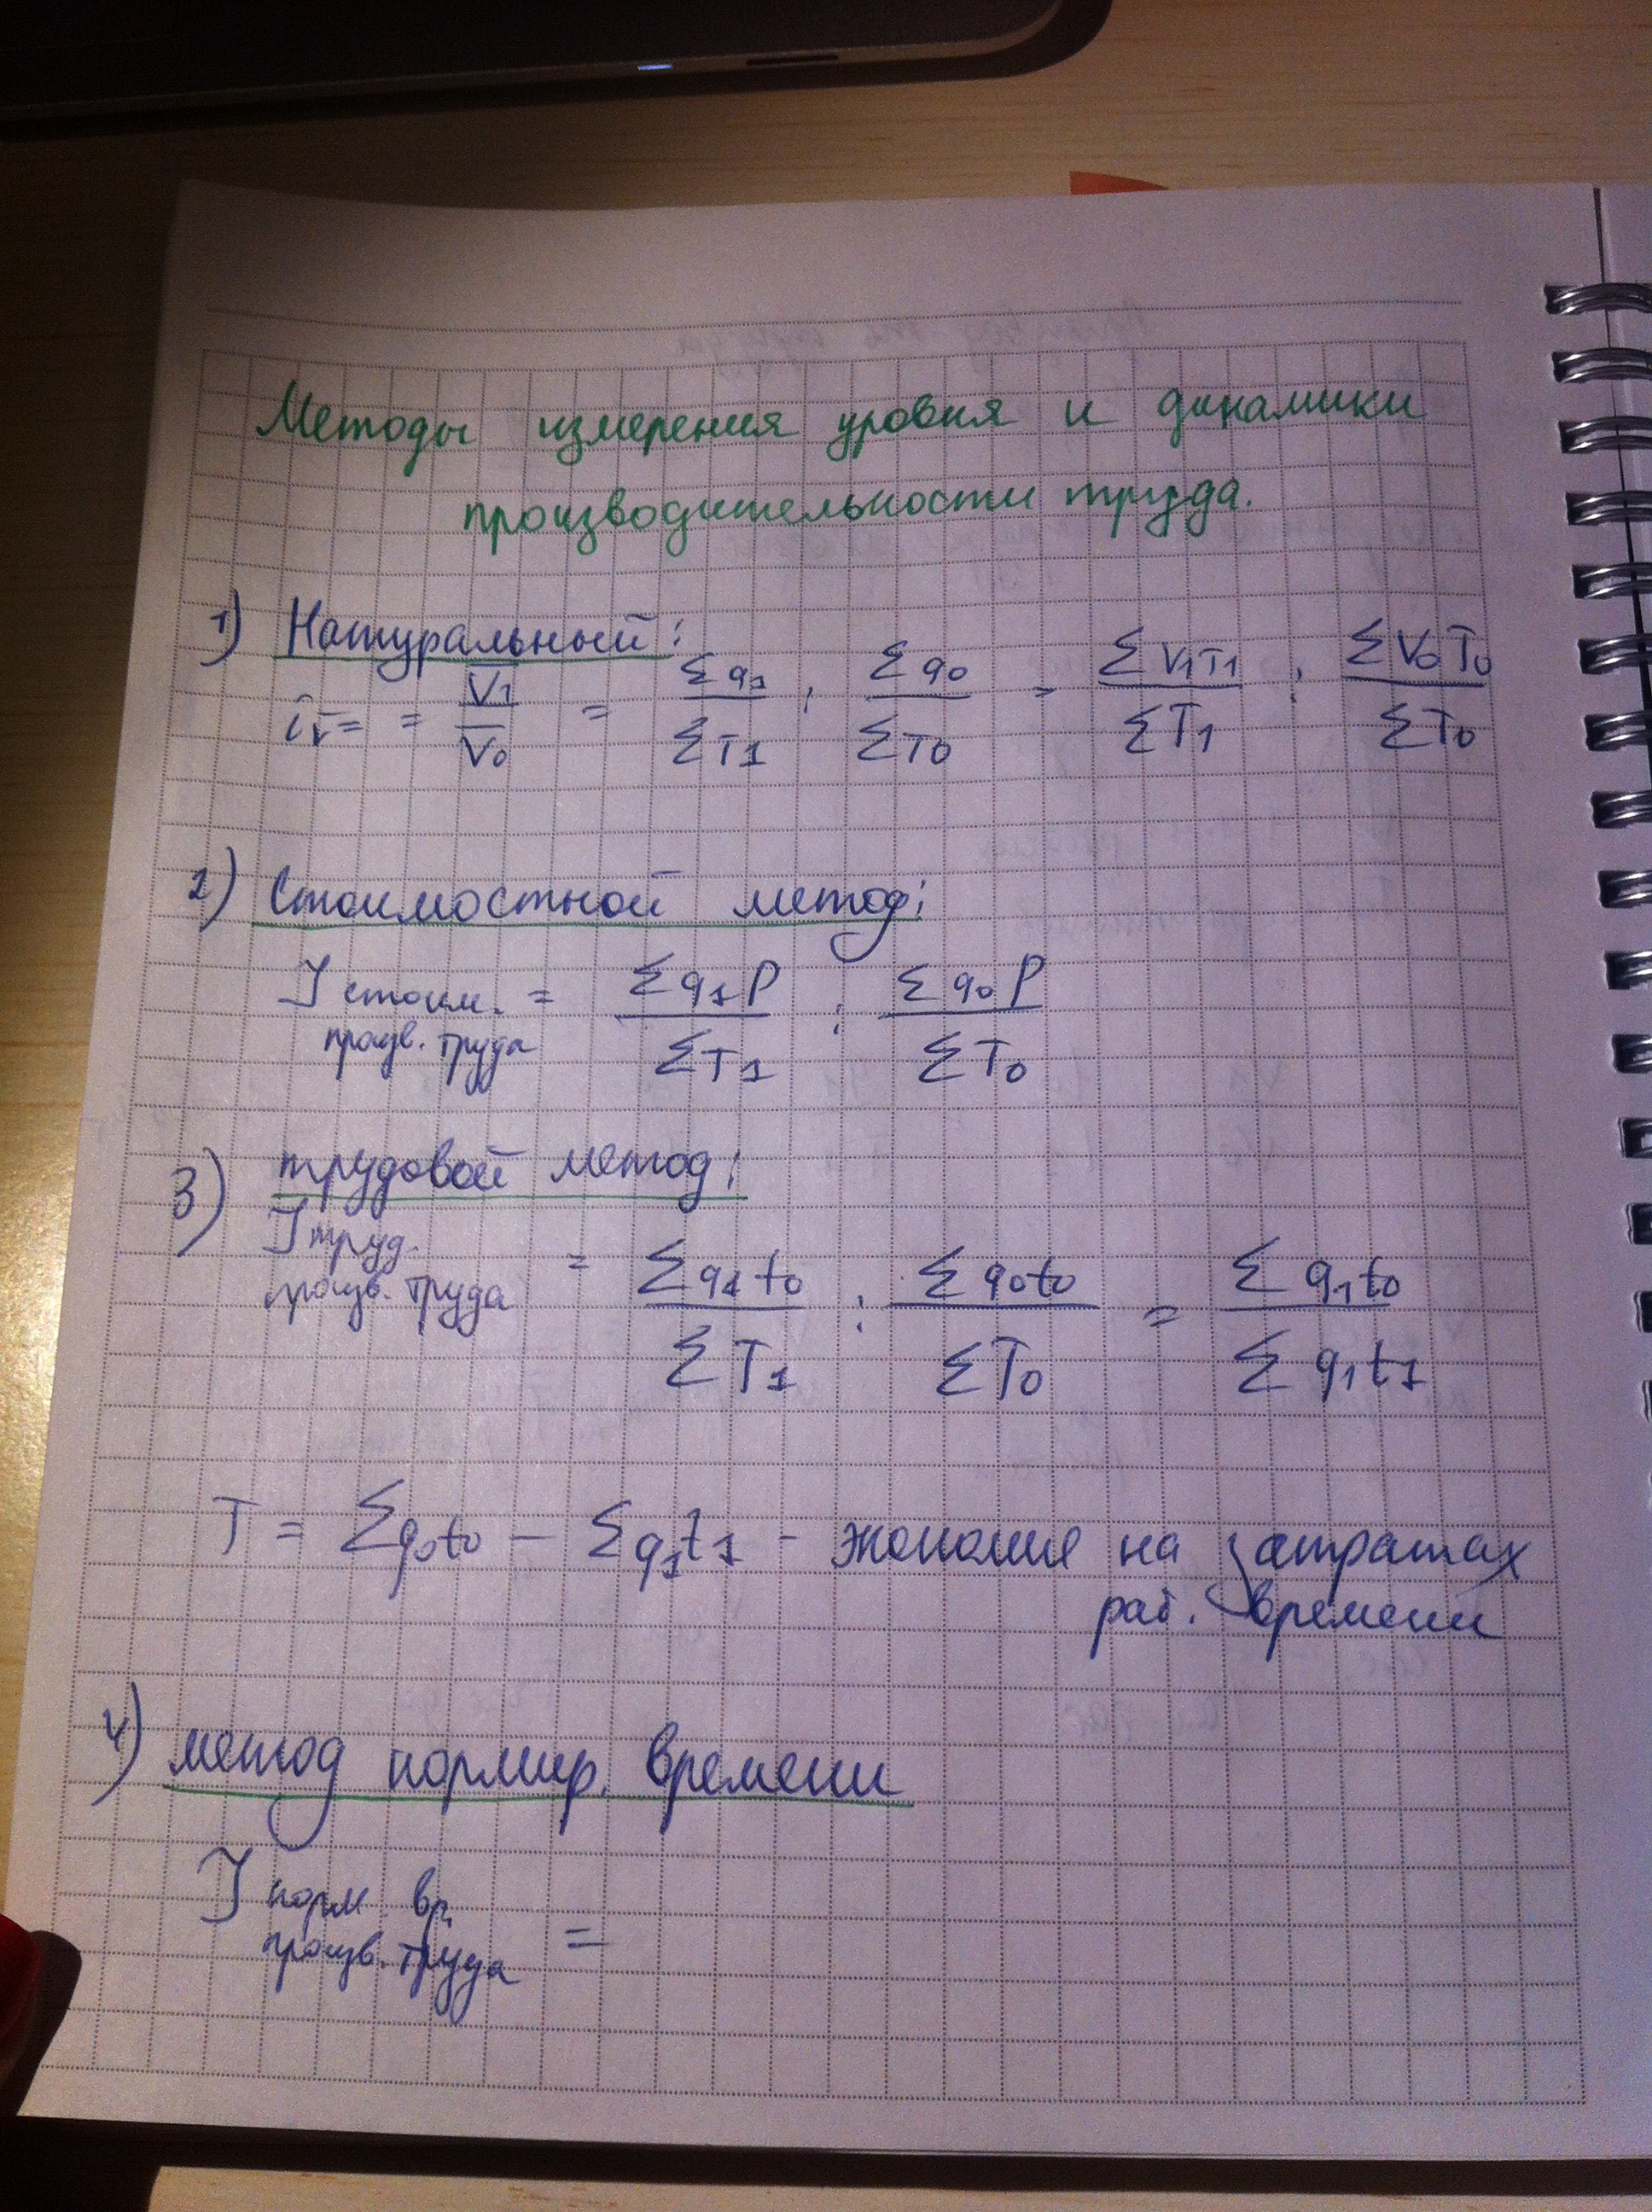 Методы измерения уровня и динамики
производительности труда.
1) Натуральный:
i v̅ = = V̅1 / V̅0 = Σq1 / ΣT1 : Σq0 / ΣT0 = ΣV1T1 / ΣT1 : ΣV0T0 / ΣT0
2) Стоимостной метод:
J стоим. произв. труда = Σq1P / ΣT1 : Σq0P / ΣT0
3) трудовой метод:
J труд. произв. труда = Σq1t0 / ΣT1 : Σq0t0 / ΣT0 = Σq1t0 / Σq1t1
T = Σq0t0 – Σq1t1 – экономия на затратах
раб. времени
4) метод нормир. времени
J норм. вр. произв. труда =